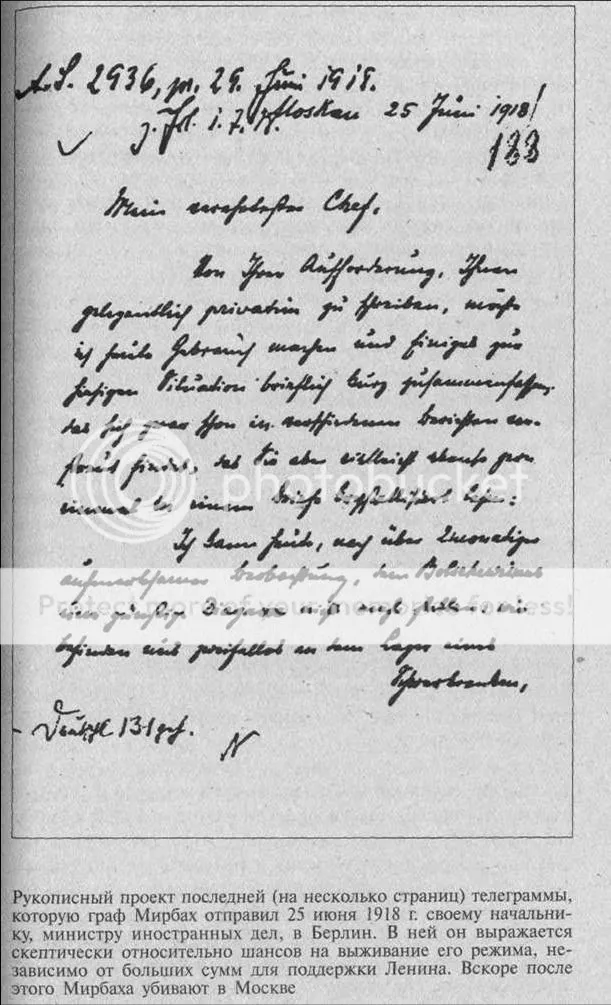 A.S. 2936, pr. 29. Juni 1918.
Moskau 25 Juni 1918
133
Mein verehrtester Chef,
Von Ihrer Aufforderung, Ihnen
gelegentlich privatim zu schreiben, möchte
ich heute Gebrauch machen und Einiges zur
hiesigen Situation brieflich kurz zusammenfassen,
das sich zwar schon in verschiedenen Berichten ver-
streut findet, das Sie aber vielleicht ebenso gern
einmal in einem Briefe lesen:
Ich kann heute, nach über 2monatiger
aufmerksamer Beobachtung, dem Bolschewismus
keine günstige Diagnose mehr stellen; wir
befinden uns zweifellos an dem Lager eines
Schwerkranken,
photobucket
Protect more of your memories for less!
Рукописный проект последней (на несколько страниц) телеграммы,
которую граф Мирбах отправил 25 июня 1918 г. своему начальни-
ку, министру иностранных дел, в Берлин. В ней он выражается
скептически относительно шансов на выживание его режима, не-
зависимо от больших сумм для поддержки Ленина. Вскоре после
этого Мирбаха убивают в Москве